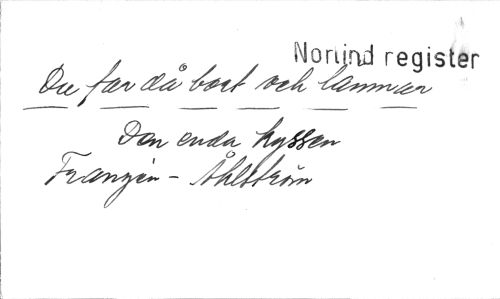 Norlind register
Du far då bort och lämnar
Den enda kyssen
Franzén - Åhlström